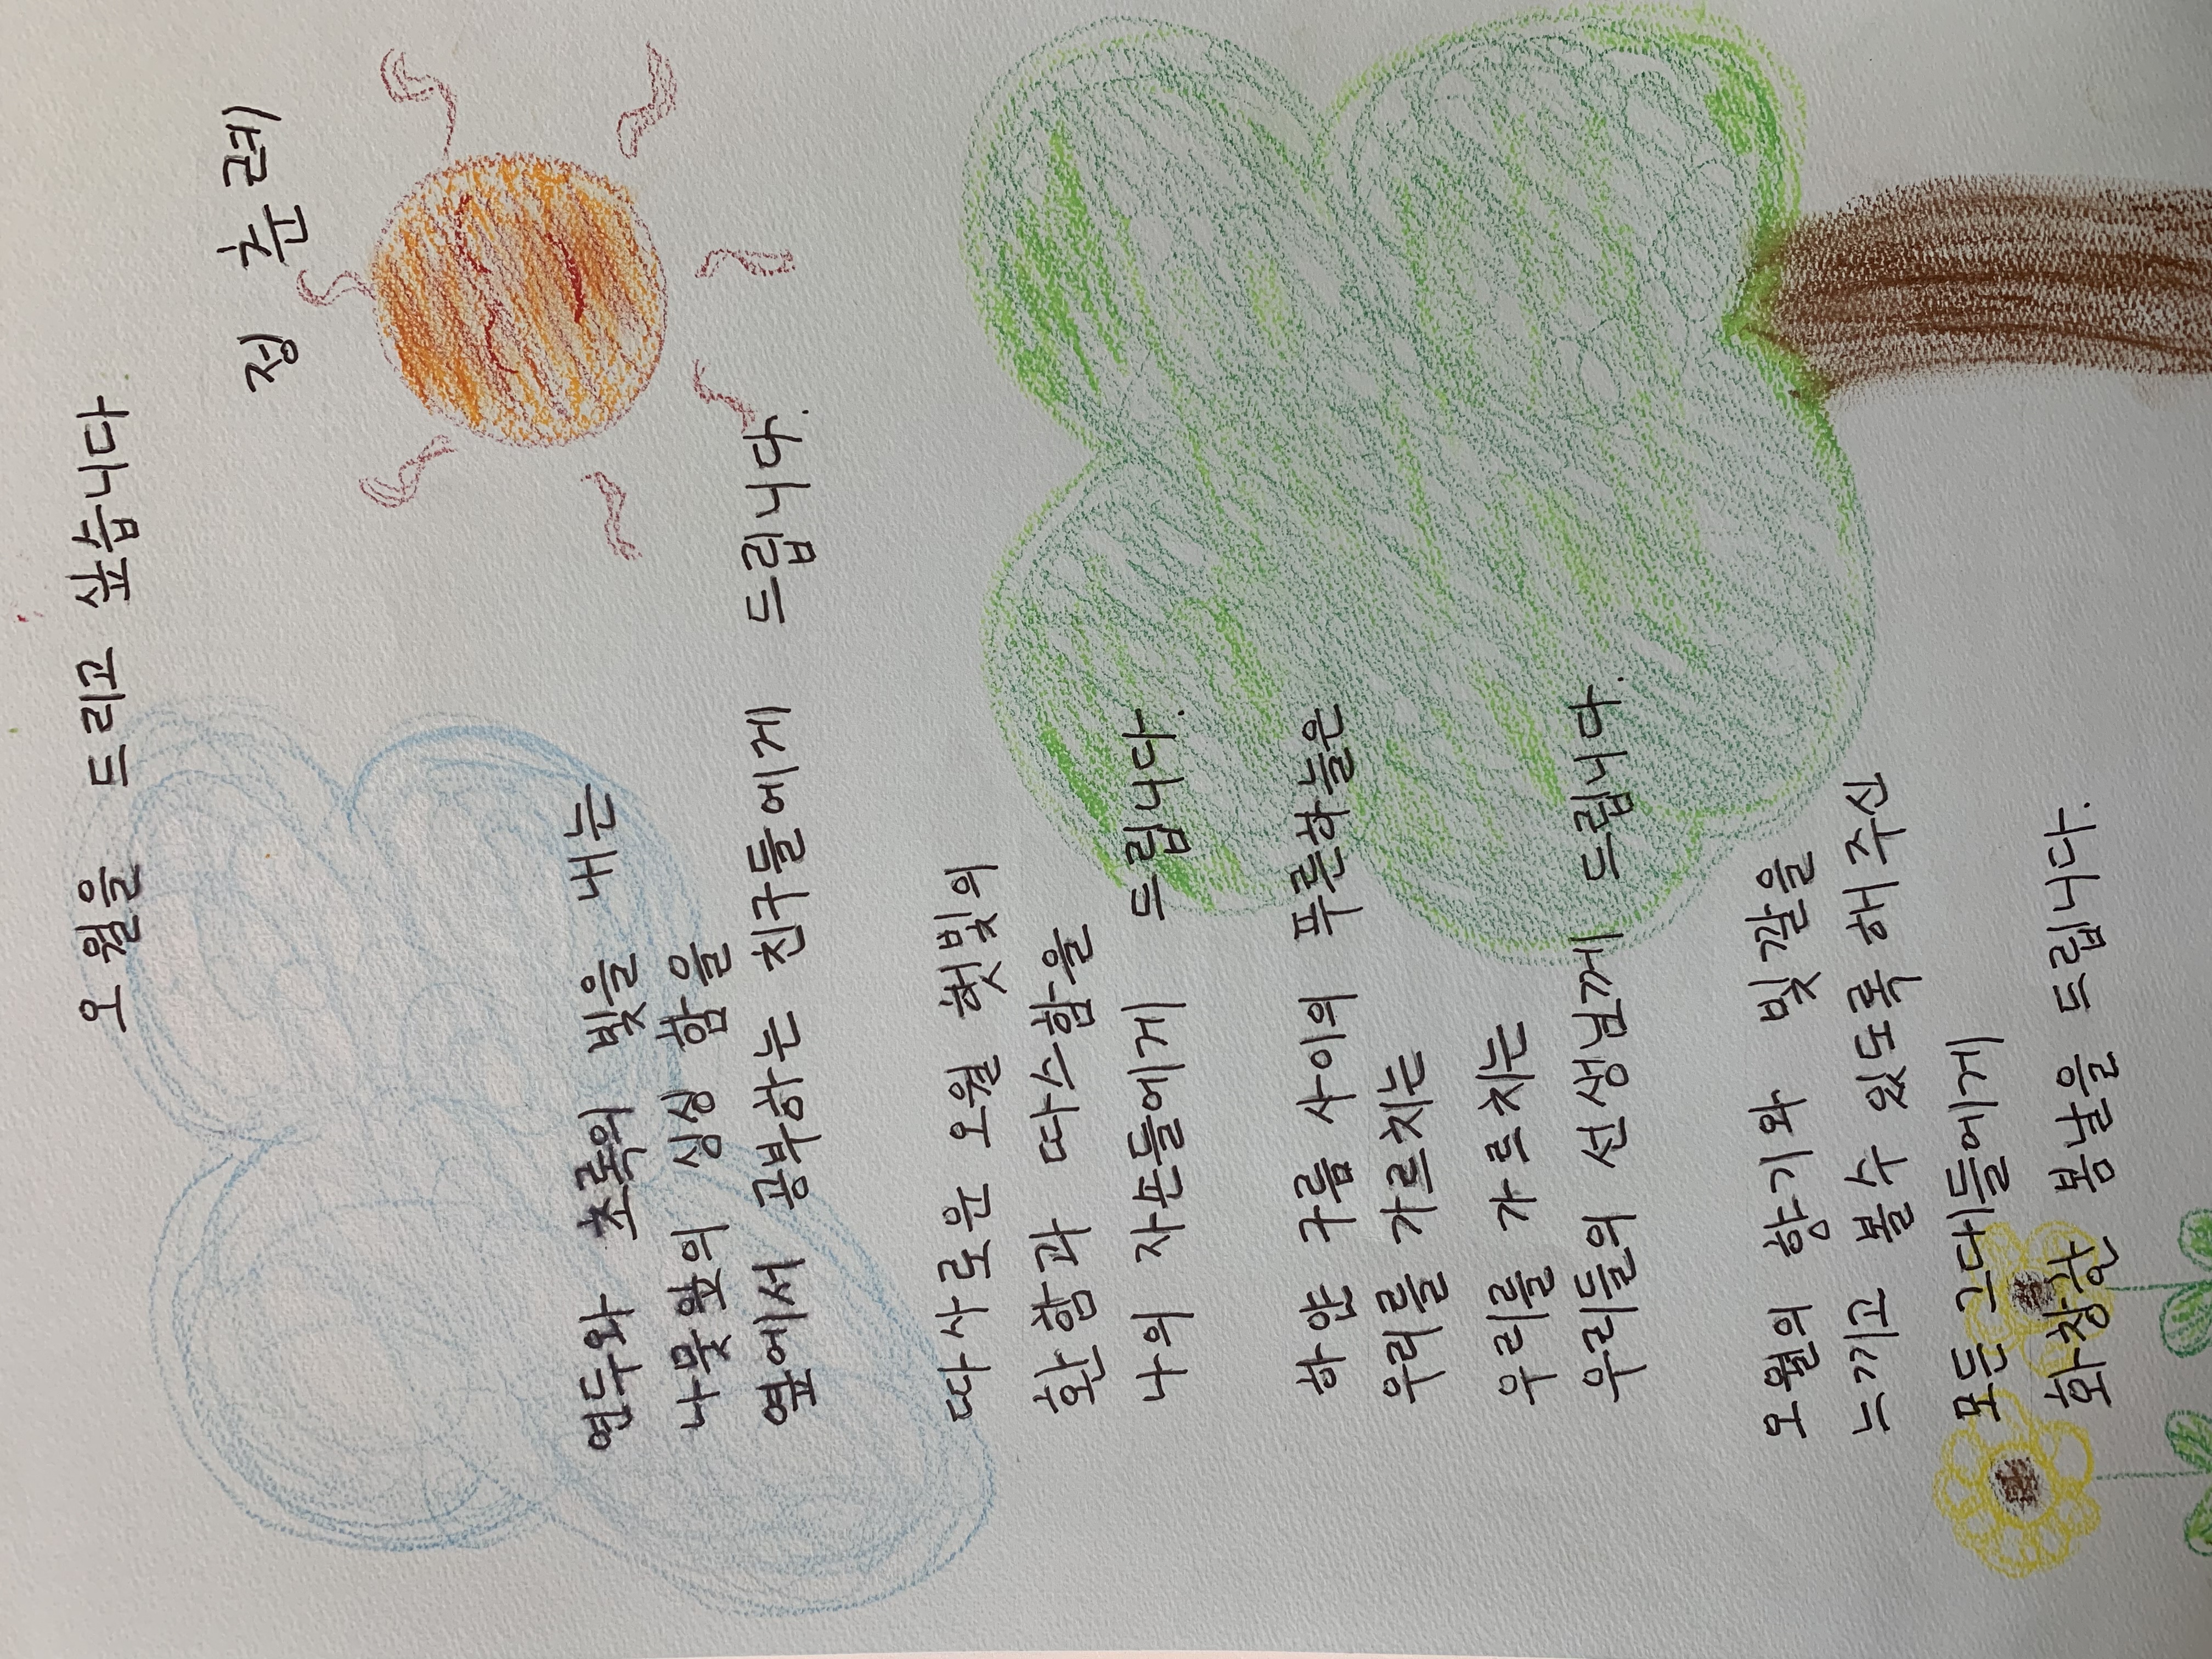 오월을 드리고 싶습니다
정 춘 례
연두와 초록의 빛을 내는
나뭇잎의 싱싱 함을
옆에서 공부하는 친구들에게 드립니다.
따사로운 오월 햇빛의
환함과 따스함을
나의 자손들에게 드립니다.
하얀 구름 사이의 푸른하늘은
우리를 가르치는
우리를 가르치는
우리들의 선생님께 드립니다.
오월의 향기와 빛깔을
느끼고 볼수 있도록 해 주신
모든 그대들에게
화창한 봄날을 드립니다.